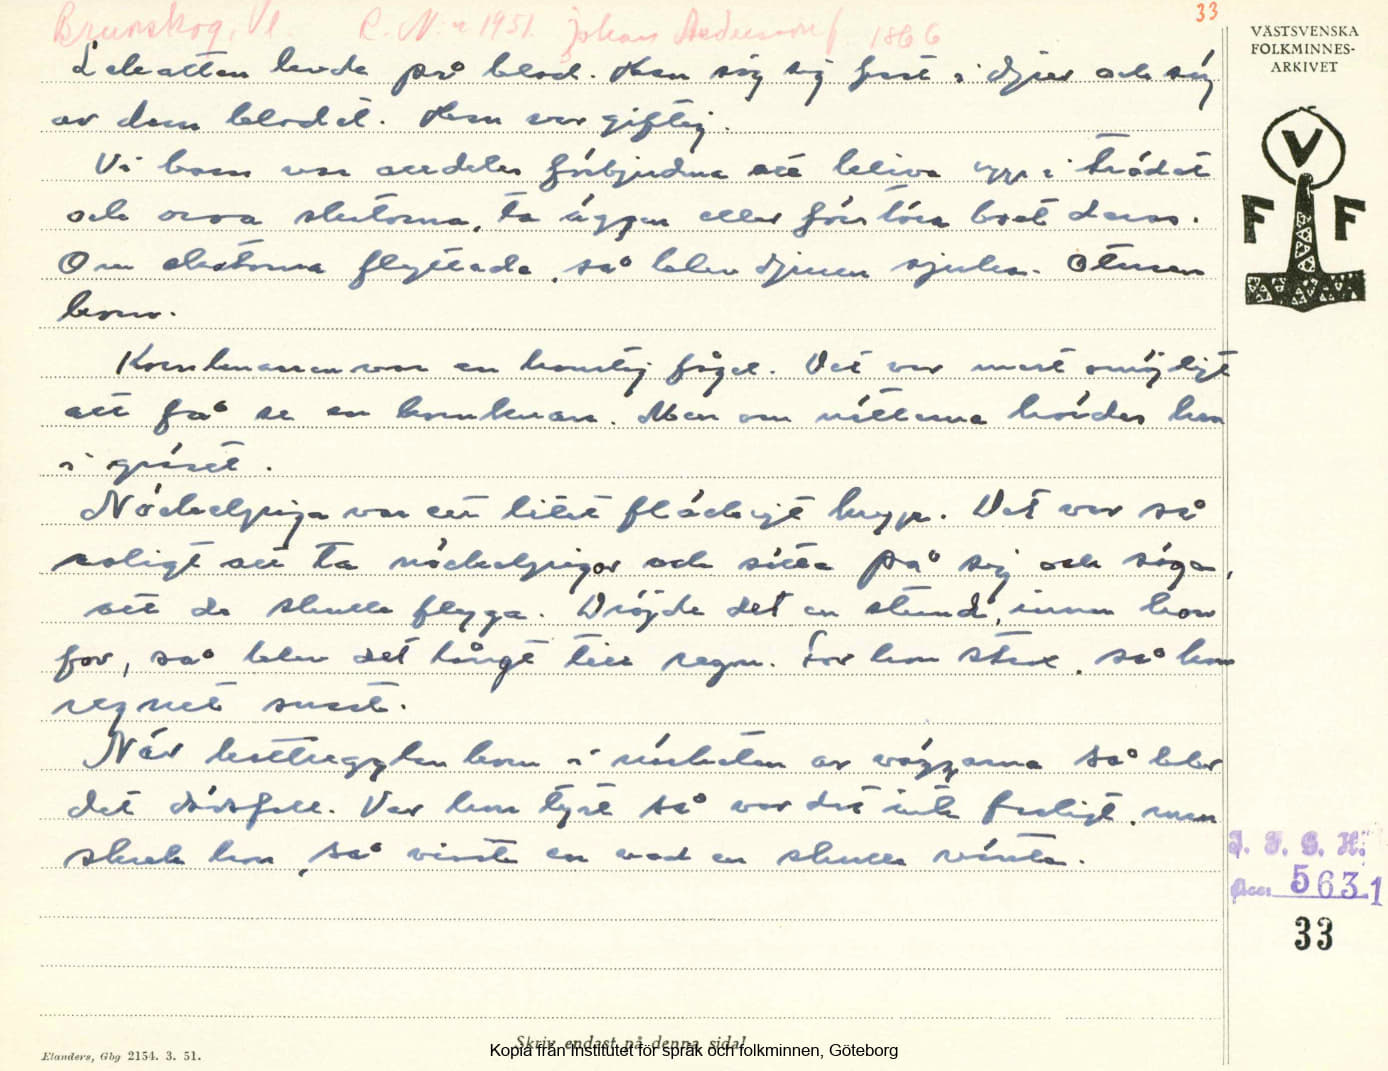 33
Brunskog, Vl. R. N:n 1951. Johan Andersson f. 1866
VÄSTSVENSKA
FOLKMINNES-
ARKIVET
Lekatten levde på blod. Han sög sig fast i djur och sög
av dem blodet. Han var giftig.
Vi barn var alldeles förbjudna att kliva upp i trädet
och oroa skatorna, ta äggen eller förstöra boet deras.
Om skatorna flyttade, så blev djuren sjuka. Otturen
kom.
Kornknarren var en konstig fågel. Det var mest omöjligt
att få se en kornknarr. Men om nätterna hördes han
i gräset.
V
F F
Nyckelpiga var ett litet fläckigt kryp. Det var så
roligt att ta nyckelpigor och sätta på sig och säga,
att de skulle flyga. Dröjde det en stund, innan hon
for, så blev det långt till regn. For hon strax, så kom
regnet snart.
När kattugglan kom i närheten av väggarna så blev
det dödsfall. Var hon tyst så var det inte farligt, men
skrek hon, så visste en vad en skulle vänta.
I. F. G. H.
Acc. 5631
33
Skriv endast på denna sida!
Elanders, Gbg 2154. 3. 51.
Kopia från Institutet för språk och folkminnen, Göteborg